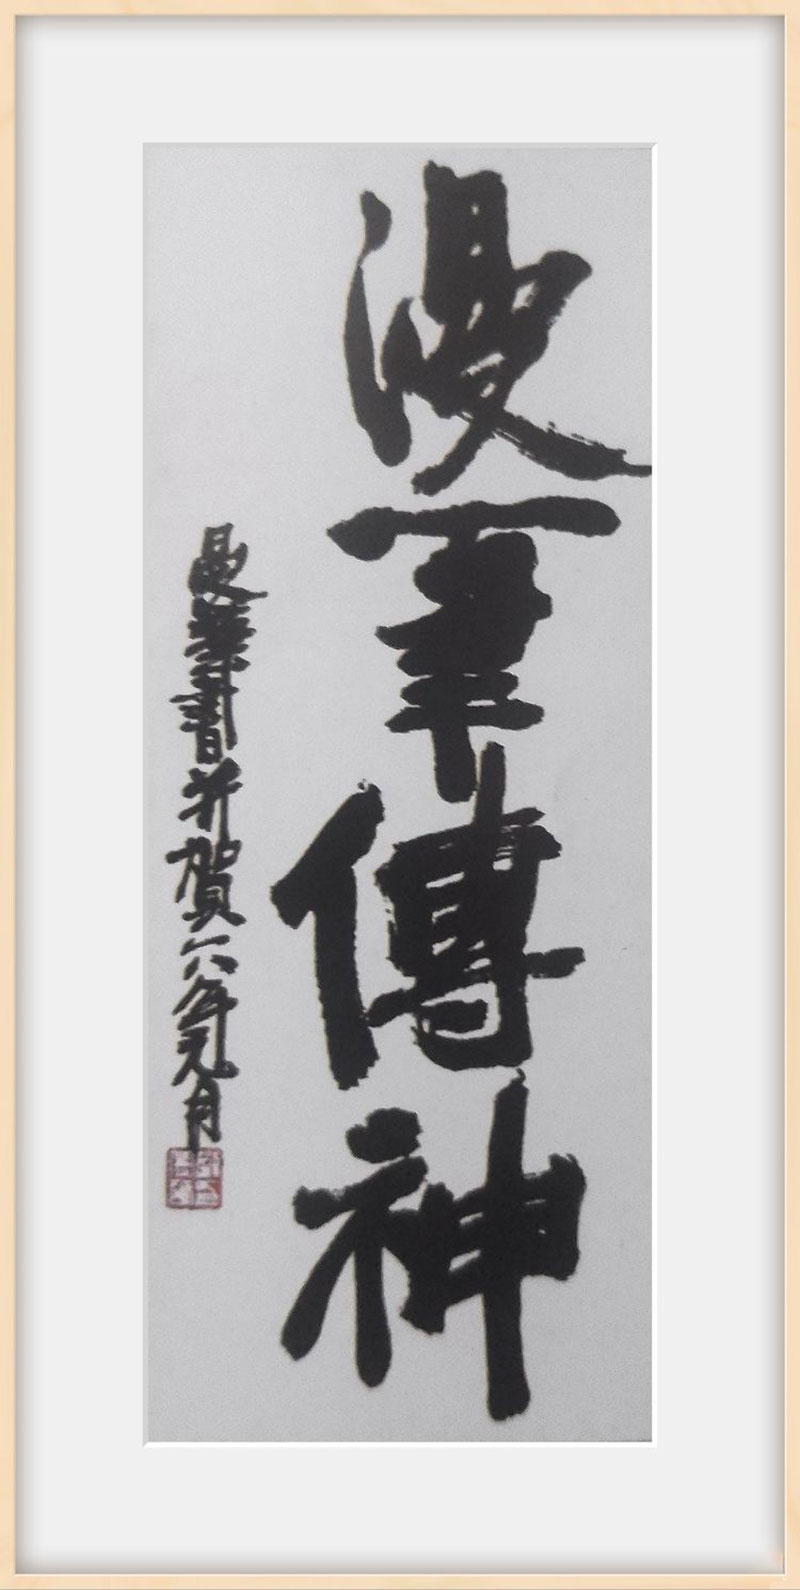 漫筆傳神
曼華書并賀六年元月